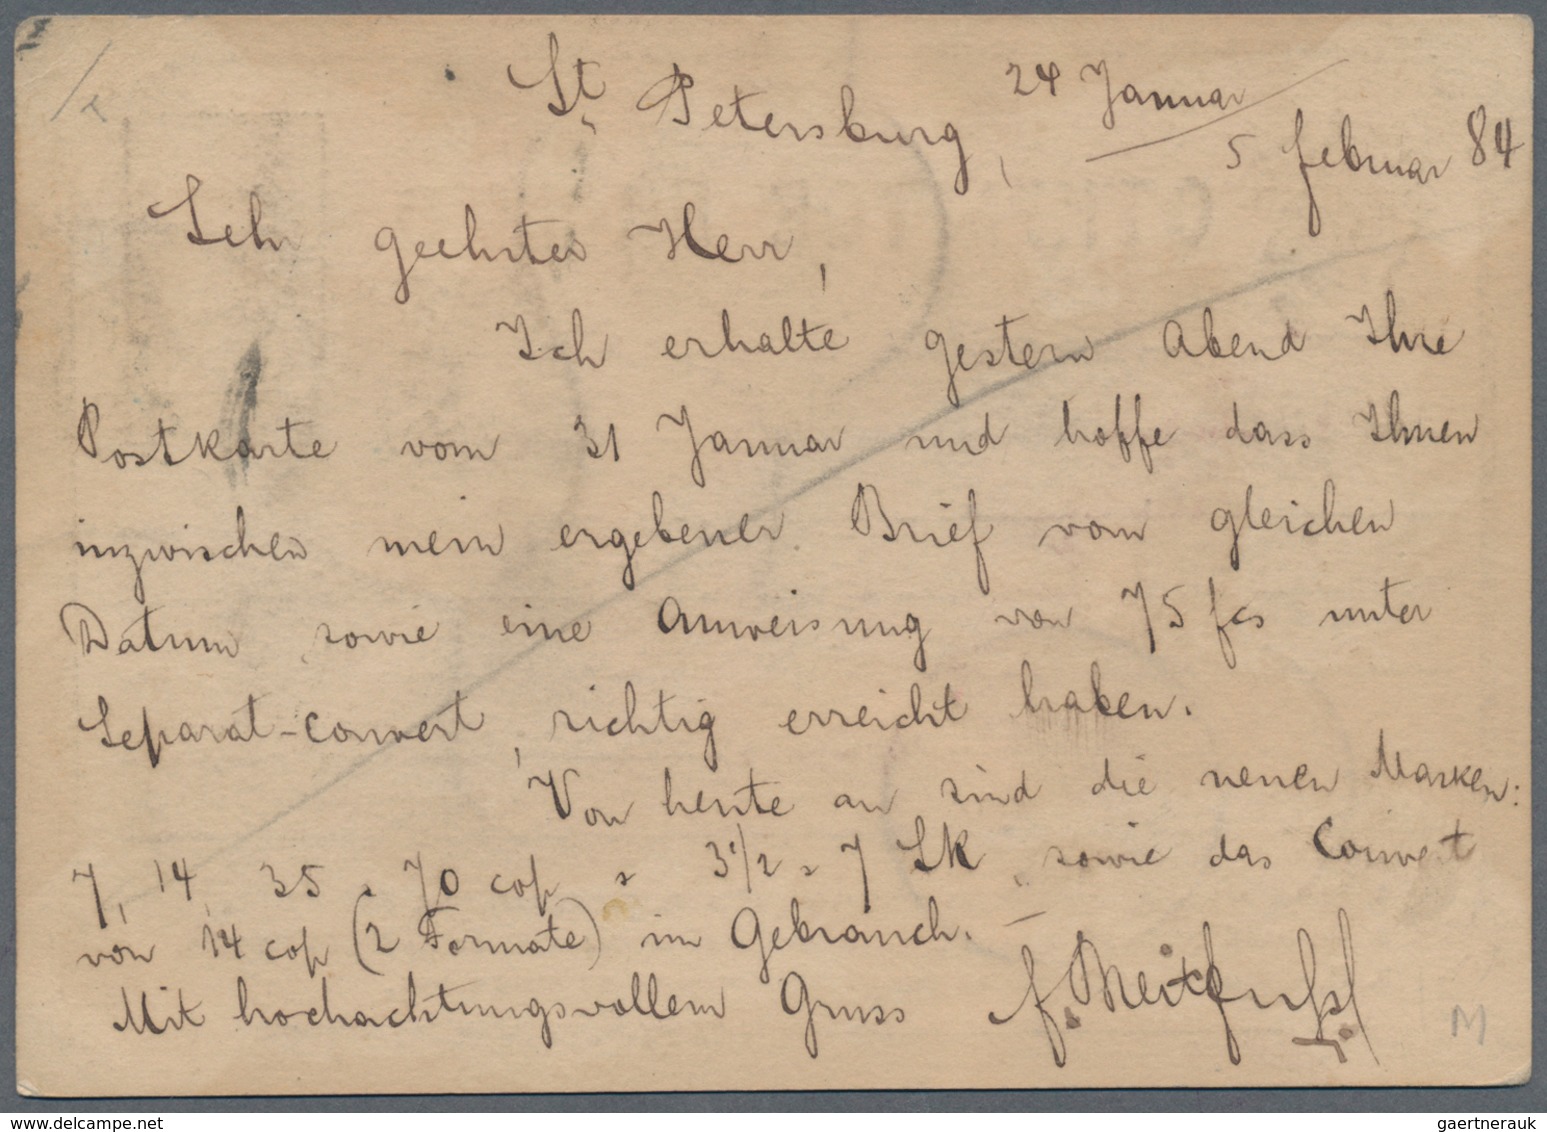 St. Petersburg, 24 Januar
5 Februar 84
Sehr geehrter Herr,
Ich erhalte gestern Abend Ihre
Postkarte vom 31 Januar und hoffe dass Ihnen
inzwischen mein ergebener Brief vom gleichen
Datum sowie eine Anweisung von 75 fcs unter
Separat-Couvert, richtig erreicht haben.
Von heute an sind die neuen Marken:
7, 14, 35 & 70 cop & 3 1/2 & 7 SR, sowie das Couvert
von 14 cop (2 Formate) im Gebrauch. —
Mit hochachtungsvollem Gruss
M
gaertnerauk @ delcampe.net